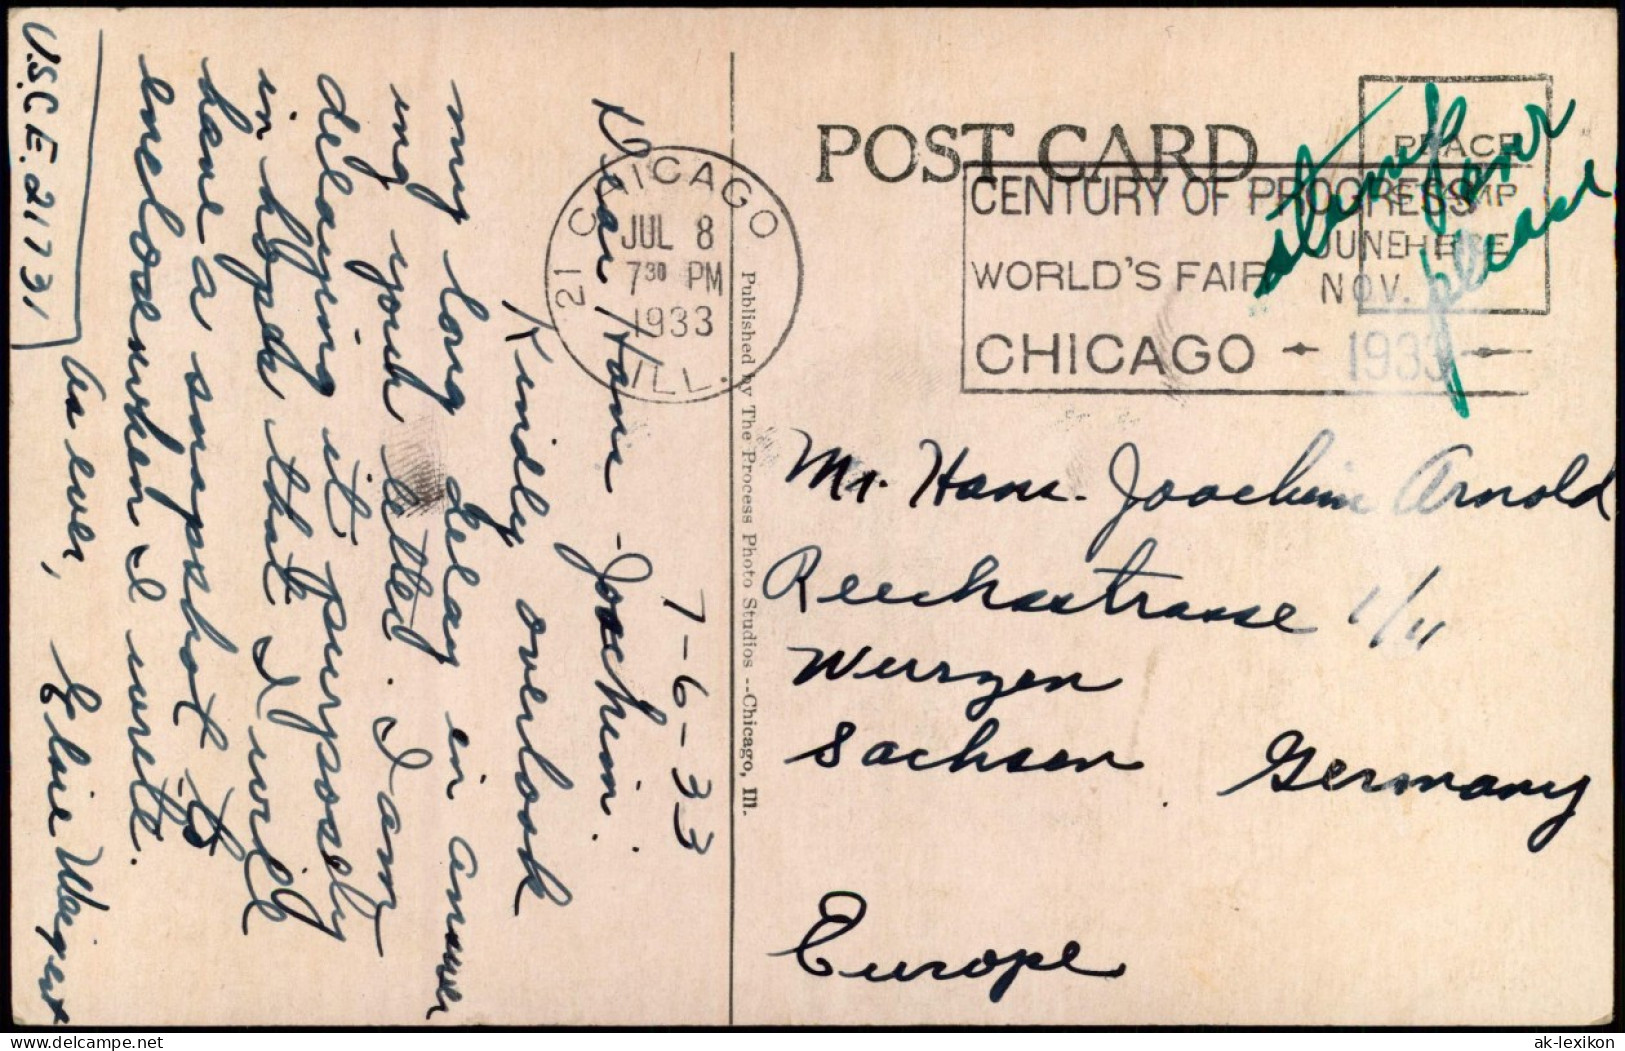 7-6-33
Dear Hans-Joachim.
Kindly overlook
my long delay in answer
ing your letter. I am
delaying it purposely
in hopes that I will
have a snapshot to
enclose when I write.
As ever, Elsie Weigert
U.S.C.E. 21731
Published by The Process Photo Studios--Chicago, Ill.
POST CARD
CHICAGO
JUL 8
7 30 PM
1933
21 ILL.
CENTURY OF PROGRESS
WORLD'S FAIR
CHICAGO
JUNE
NOV.
1933
PLACE
STAMP
HERE
stamp
please
Mr. Hans-Joachim Arnold
Reechsstrasse 1/11
Wurzen
Sachsen Germany
Europe
ak-lexikon